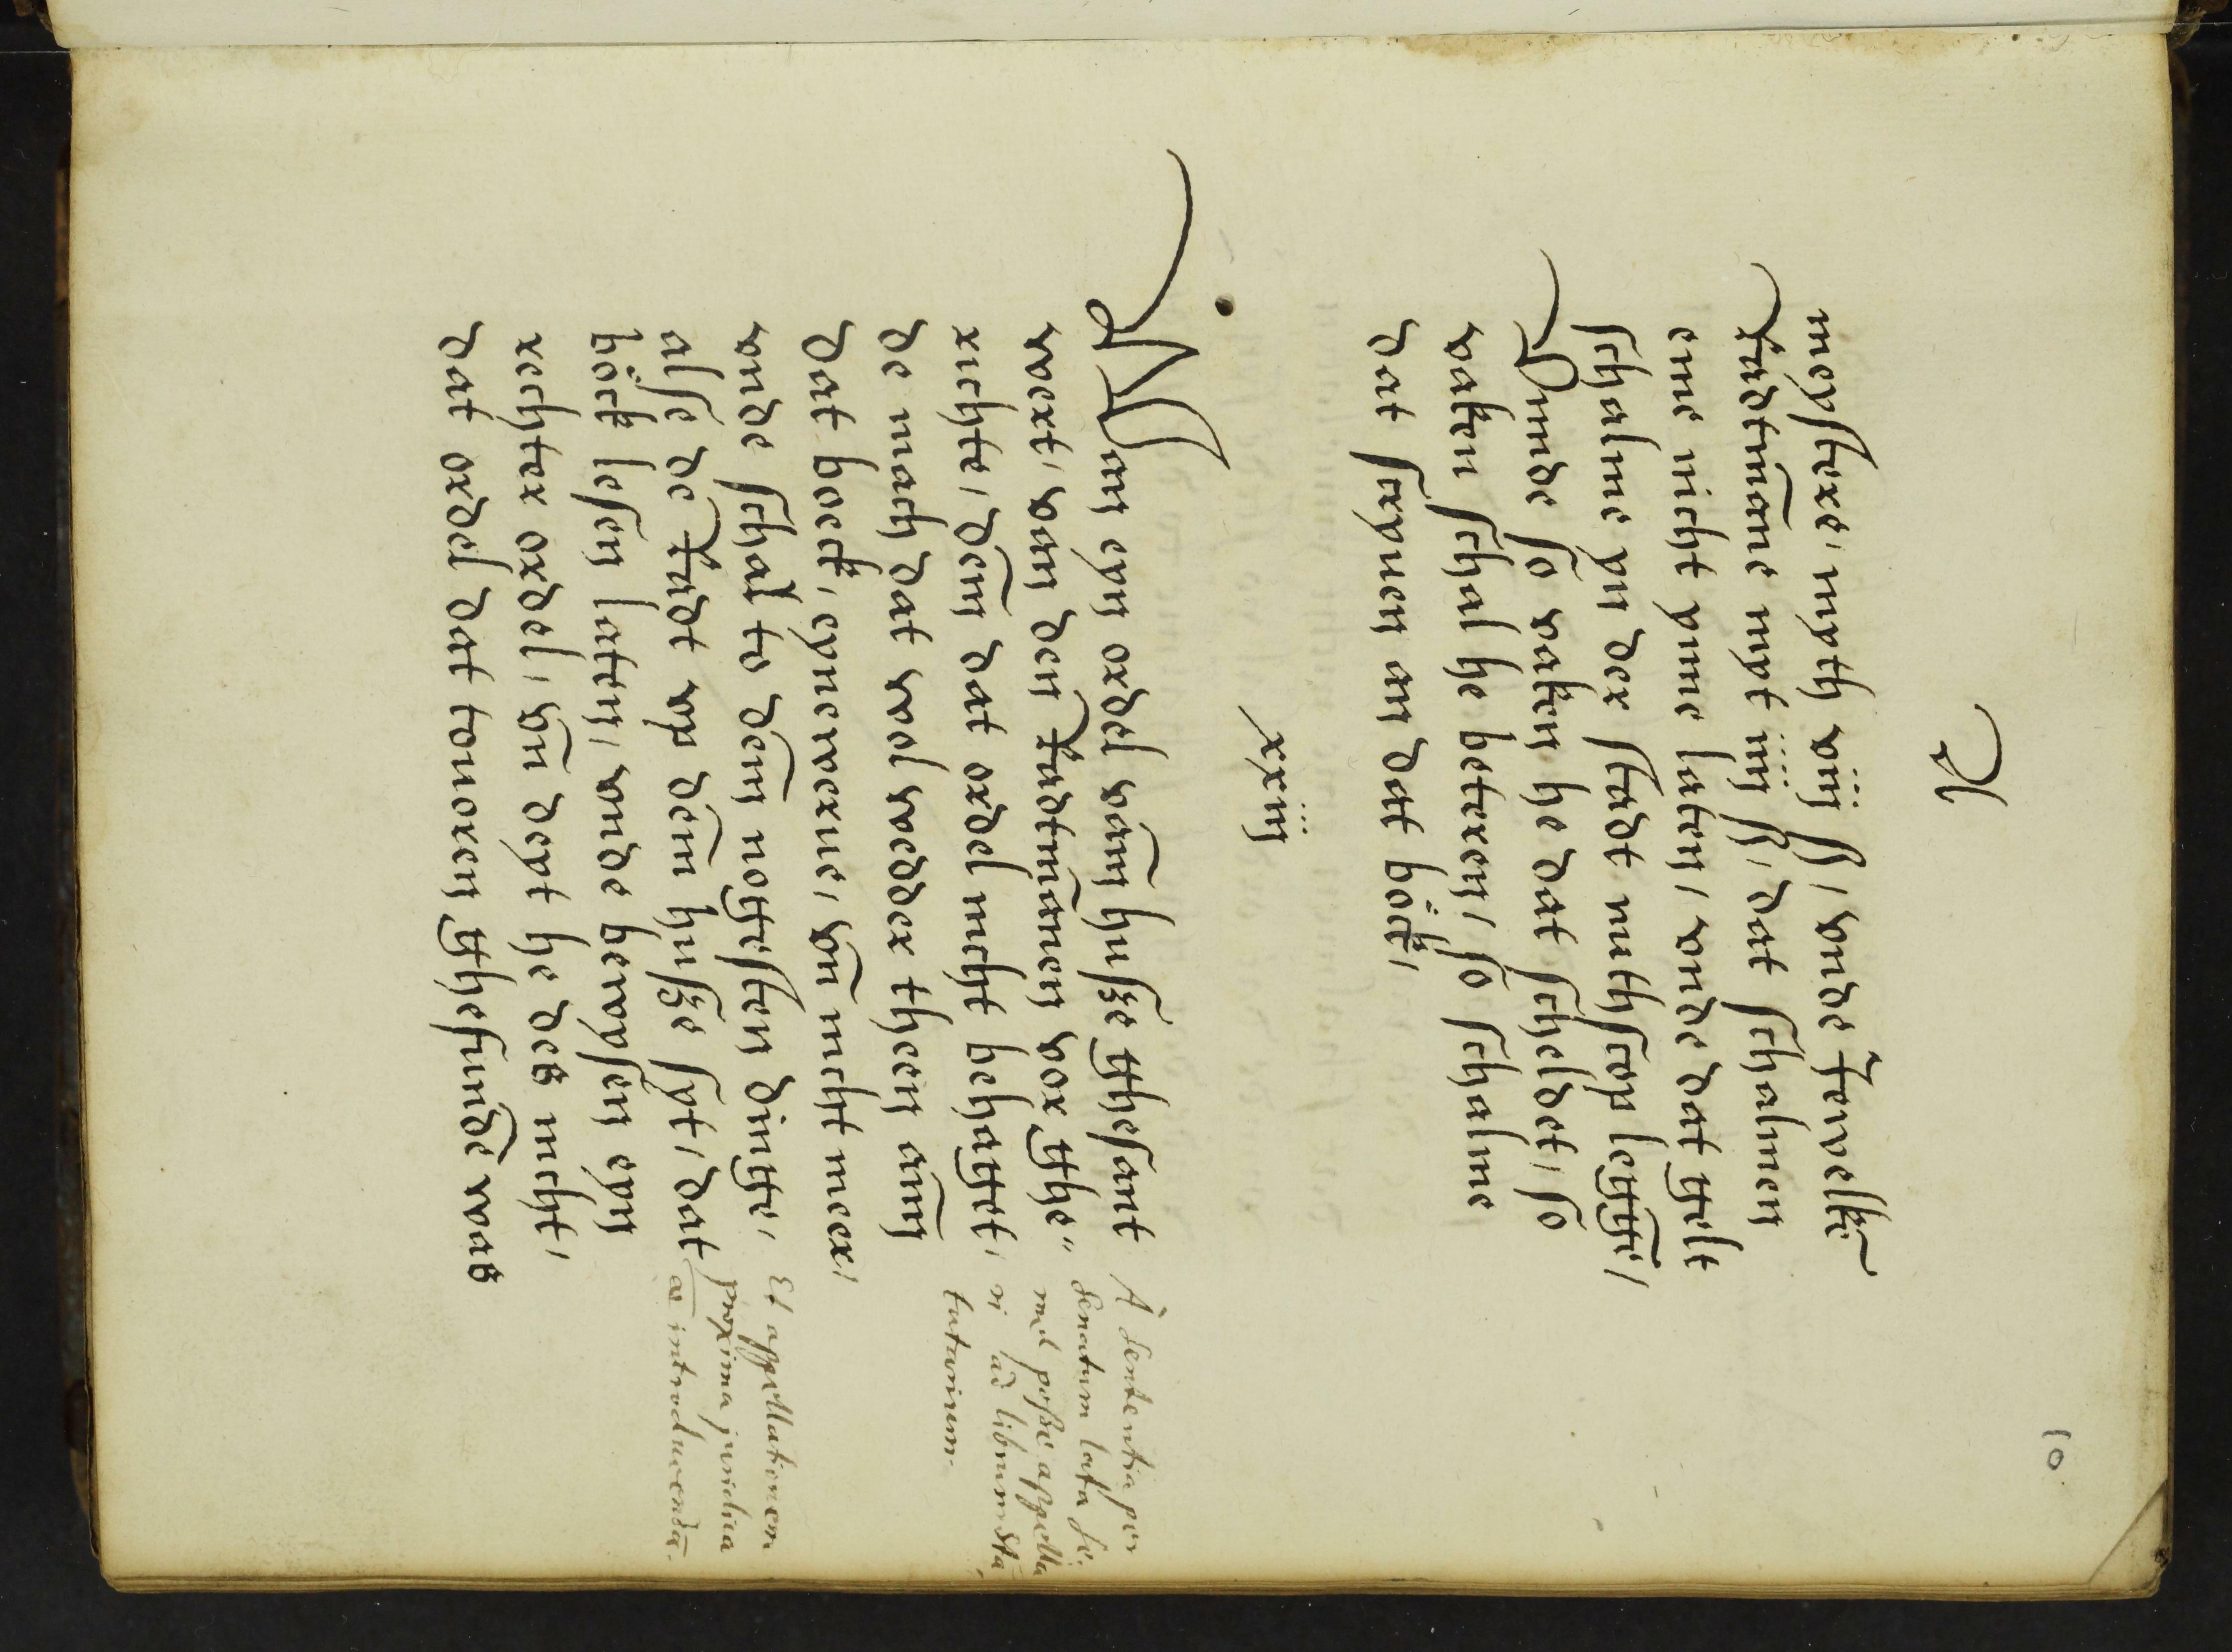 K
meystere, myth iiij ß, vnde Jewelk
Radtmāne myt iiij ß, dat schalmen
eme nicht ynne laten, vnde dat gelt
schalme yn der stadt nuthscop leggē,
Vnnde so vaken he dat scheldet, so
vaken schal he beteren, so schalme
dat scryuen an dat böck,
xxiij
Wan eyn ordel vam husze ghesant
wert, van den Radtmānen vor ghe„
richte, dem dat ordel nicht behaget,
de mach dat wol wedder theen amm
dat boeck, eynewerue, vñ nicht meer,
vnde schal to dem negesten dinge,
alse de Radt vp dem husze syt, dat
böck lesen laten, vnde bewysen eyn
rechter ordel, vñ deyt he des nicht,
dat ordel dat touoren ghefunde was
A sententia per
senatum lata se„
mel posse appella„
ri ad librum sta„
tutorum.
Et appellationem
proxima juridica
ēē introducendā.